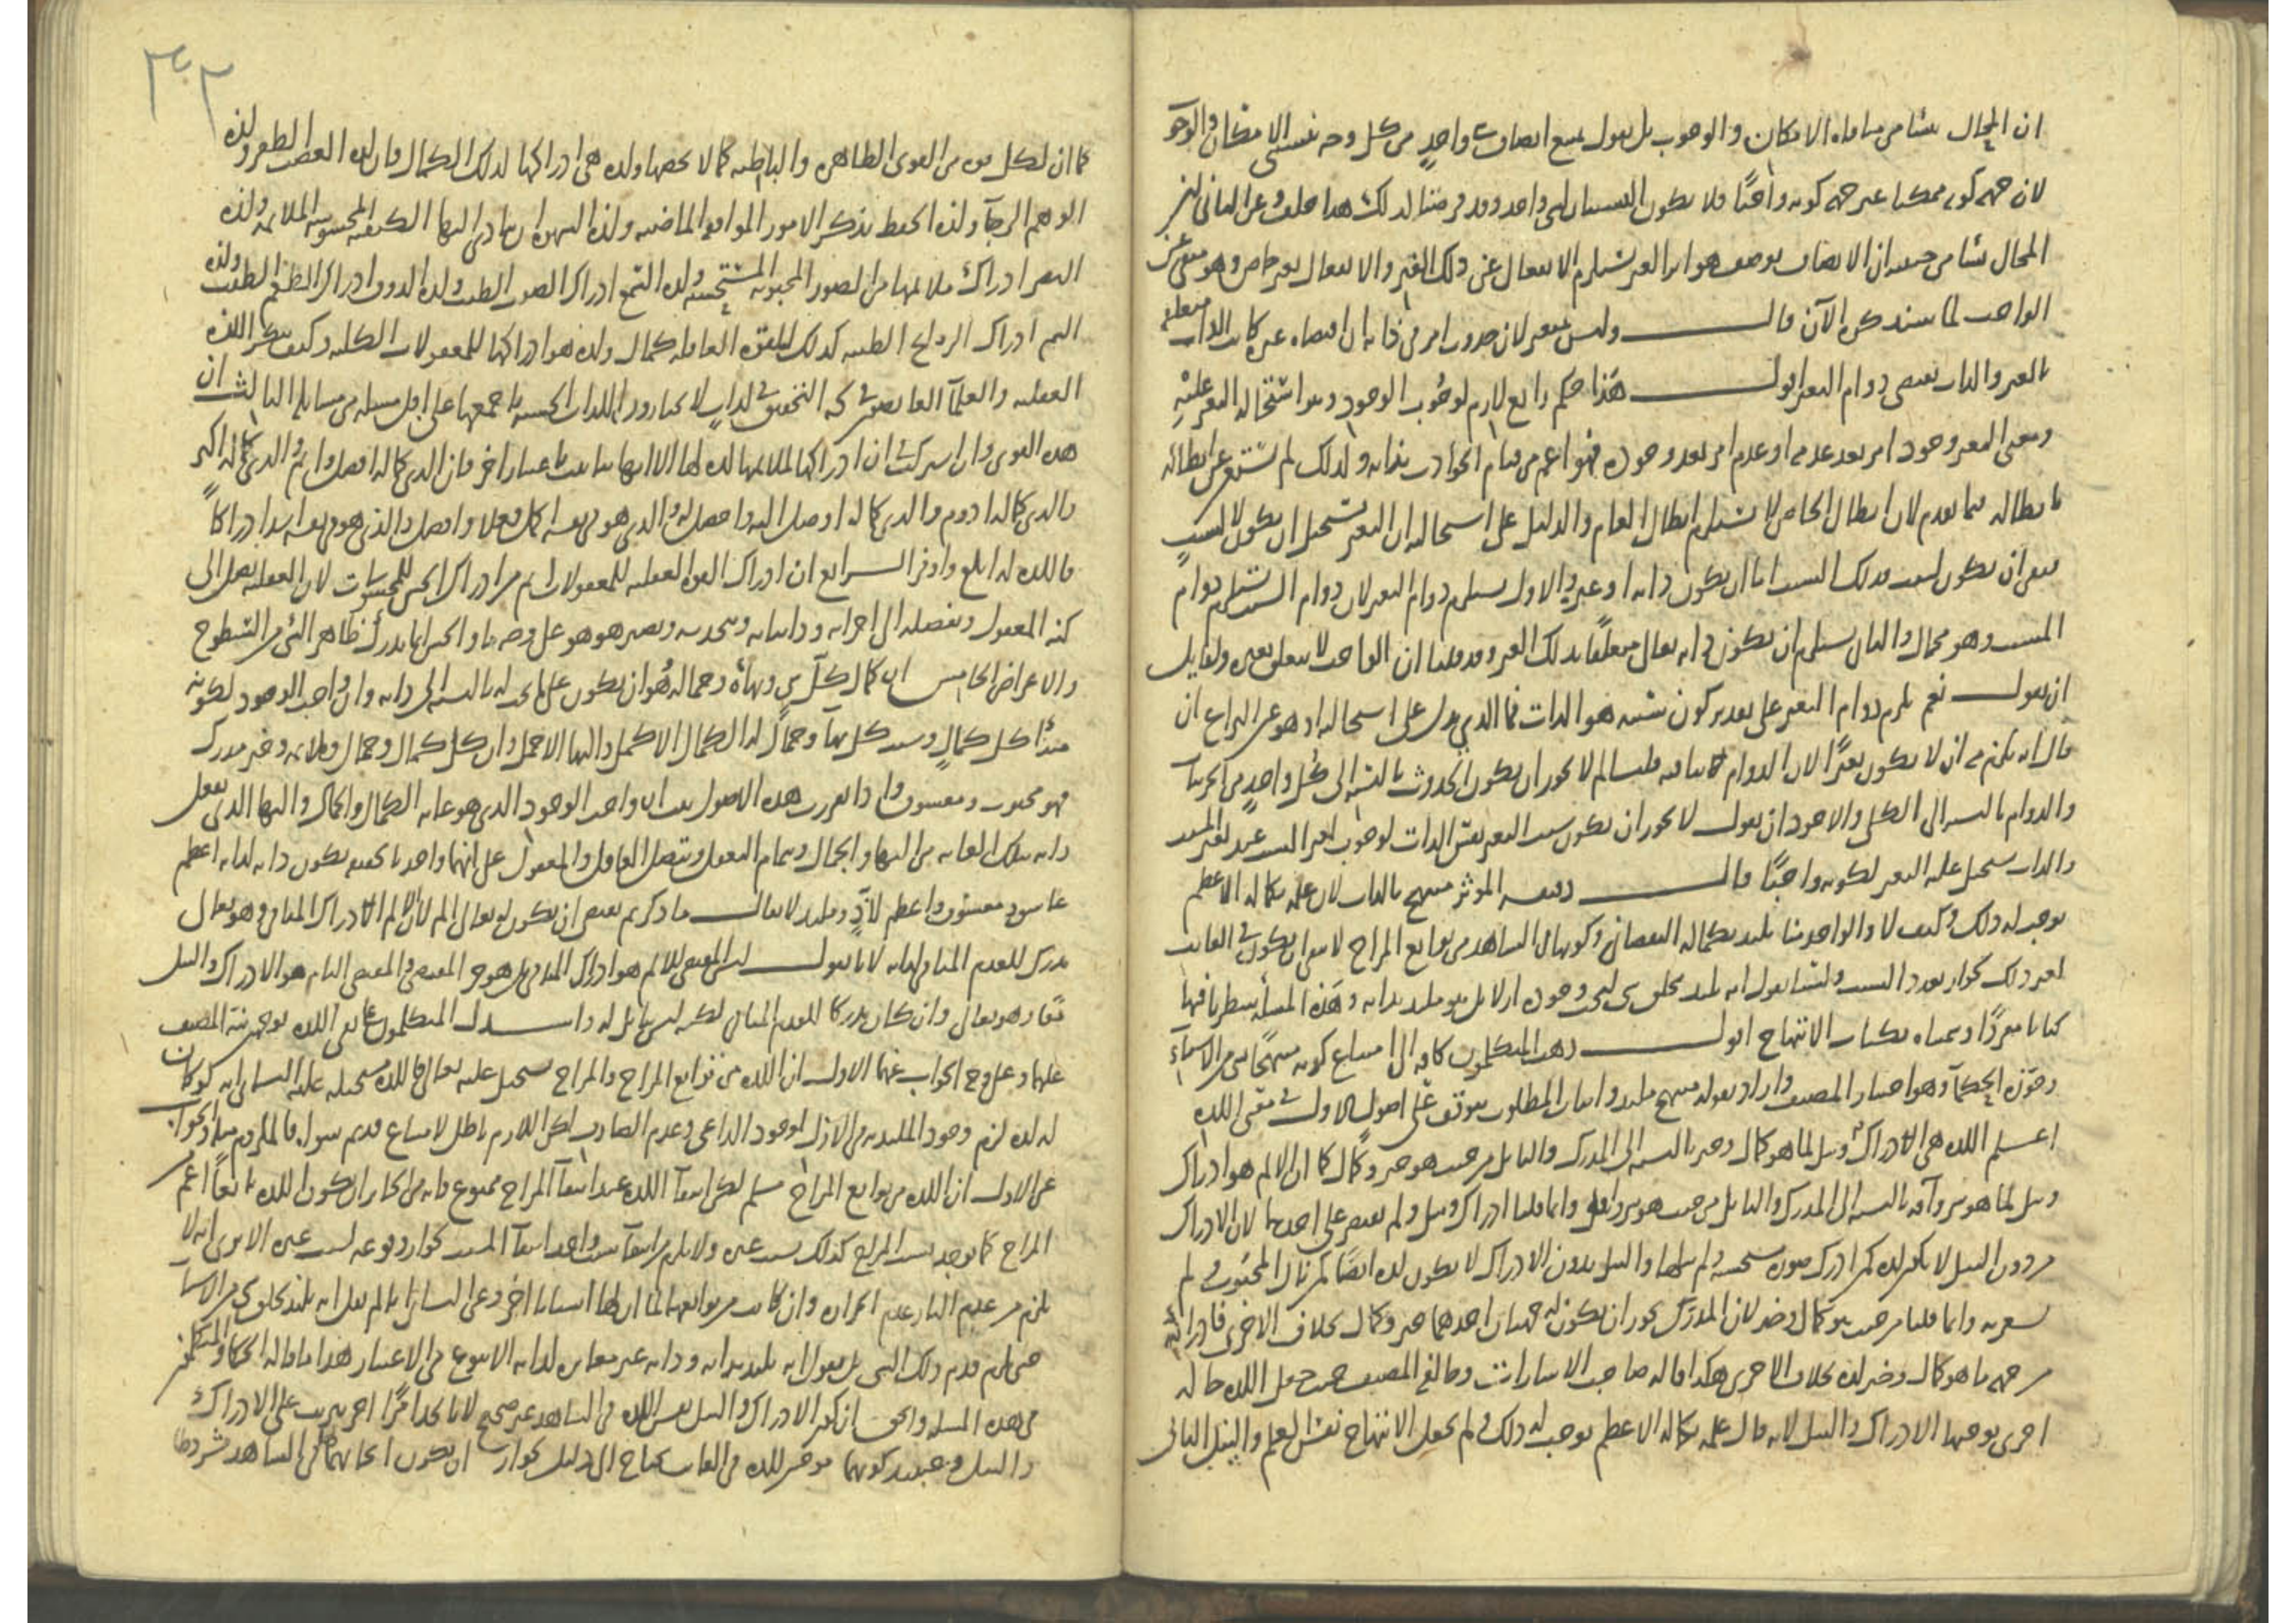 ان المحال نشا من منافاة الامكان والوجوب بل نقول يمنع اتصاف واحد من كل وجه بنسبتي الامكان والوجو
لان جهة كونه ممكنا غير جهة كونه واجبًا فلا يكون النسبتان لشي واحد وقد فرضنا كذلك هذا خلف وعن الثاني
المحال نشا من حيث ان الاتصاف بوصف هو اثر الغير يستلزم الانفعال عن ذلك الغير والانفعال تغير خاص وهو منفي عن
الواجب لما سنذكره الآن قال وليس بمتغير لان حدوث امر في ذاته ان اقتضاه غيره كانت الذات متعلقة
بالغير والذات تقتضي دوام التغير اقول هذا حكم رابع لازم لوجوب الوجود وهو استحالة التغير عليه
ومعنى التغير وجود امر بعد عدمه او عدم امر بعد وجوده فهو اعم من قيام الحوادث بذاته ولذلك لم يستغن عن ابطاله
بابطاله فيما تقدم لان ابطال الخاص لا يستلزم ابطال العام والدليل على استحالته ان التغير يستحيل ان يكون لا لسبب
فبقى ان يكون لسبب فذلك السبب اما ان يكون ذاته او غيره والاول يستلزم دوام التغير لان دوام السبب يستلزم دوام
المسبب وهو محال والثاني يستلزم ان يكون ذاته تعالى متعلقًا بذلك الغير وقد قلنا ان الواجب لا يتعلق بغيره ولقايل
ان يقول نعم يلزم دوام التغير على تقدير كون سببه هو الذات فما الذي يدل على استحالته اذ هو عين النزاع ان
قال انه يلزم منه ان لا يكون تغيرًا لان الدوام ينافيه قلنا لم لا يجوز ان يكون الحدوث بالنسبة الى كل واحد من الجزئيات
والدوام بالنسبة الى الكل والاجود ان يقول لا يجوز ان يكون سبب التغير نفس الذات لوجوب تغير السبب عند تغير المسبب
والذات يستحيل عليه التغير لكونه واجبًا قال ونعته المؤثر مبتهج بالذات لان علمه بكماله الاعظم
يوجب له ذلك وكيف لا والواحد منا يلتذ بكماله النقصاني وكونها في الشاهد من توابع المزاج لا ينفي ان يكون في الغائب
لغير ذلك لجواز تعدد السبب ولسنا نقول انه يلتذ بخلق شي ليجب وجوده ازلا بل هو ملتذ بذاته وهذه المسألة سطرنا فيها
كتابا مفردًا وسميناه بكتاب الابتهاج اقول ذهب المتكلمون كافة الى امتناع كونه مبتهجًا بشي من الاشياء
وجوزه الحكماء وهو اختيار المصنف واراد بقوله مبتهج ملتذ واثبات المطلوب يتوقف على اصول الاول في معنى اللذة
اعلم اللذة هي الادراك ونيل لما هو كمال وخير بالنسبة الى المدرك والنايل من حيث هو خير وكمال كما ان الالم هو ادراك
ونيل لما هو شر وآفة بالنسبة الى المدرك والنايل من حيث هو شر وآفة وانما قلنا ادراك ونيل ولم نقتصر على احدهما لان الادراك
من دون النيل لا يكون لذة كمن ادرك صورة مستحسنة ولم ينلها والنيل بدون الادراك لا يكون لذة ايضًا كمن نال المحبوب ولم
يشعر به وانما قلنا من حيث هو كمال وخير لان المدرك يجوز ان يكون له جهتان احدهما خير وكمال بخلاف الاخرى فادراكه
من جهة ما هو كمال وخير لذة بخلاف الاخرى هكذا قاله صاحب الاشارات وخالفه المصنف حيث جعل اللذة حالة
اخرى يوجبها الادراك والنيل لانه قال علمه بكماله الاعظم يوجب له ذلك ولم يجعل الابتهاج نفس العلم والنيل الثاني
٣٠٢
كما ان لكل قوة من القوى الظاهرة والباطنة كمالا يخصها ولذة هي ادراكها لذلك الكمال فان لذة الغضب الظفر ولذة
الوهم الرجاء ولذة الحفظ تذكر الامور الموافقة الماضية ولذة الشهوة ان يتادى اليها الكيفية المحسوسة الملائمة ولذة
البصر ادراك ملائمها من الصور المحبوبة المستحسنة ولذة السمع ادراك الصوت الطيب ولذة الذوق ادراك الطعم الطيب ولذة
الشم ادراك الروائح الطيبة كذلك للقوة العاقلة كمال ولذة هو ادراكها للمعقولات الكلية وكيف ينكر اللذة
العقلية والعلماء الغائصون في لجة التحقيق لا يختارون اللذات الحسية باجمعها على اقل مسئلة من مسائلهم الثالث ان
هذه القوى وان اشتركت في ان ادراكها لملائمها لذة لها الا انها تتفاوت باعتبار اخر فان الذي كماله افضل واتم والذي كماله اكثر
والذي كماله ادوم والذي كماله اوصل اليه واحصل له والذي هو في نفسه اكمل فعلا وافضل والذي هو في نفسه اشد ادراكًا
فاللذة له ابلغ واوفر الرابع ان ادراك القوة العقلية للمعقولات اتم من ادراك الحس للمحسوسات لان العقلية يصل الى
كنه المعقول وتفصله الى اجزائه وذاتياته وتتحد به ويصير هو هو على وجه ما والحس انما يدرك ظاهر الشي من السطوح
والاعراض الخامس ان كمال كل شي وبهاءه وجماله هو ان يكون على ما يجب له بالنسبة الى ذاته وان واجب الوجود لكونه
مبدأ كل كمال وسند كل بهاء وجمال له الكمال الاكمل والبهاء الاجمل وان كل كمال وجمال وملائمة وخير مدرك
فهو محبوب ومعشوق واذا تقررت هذه الاصول ثبت ان واجب الوجود الذي هو غاية الكمال والجمال والبهاء الذي يعقل
ذاته بتلك الغاية من البهاء والجمال وبتمام التعقل ويتعقل العاقل والمعقول على انهما واحد بالحقيقة يكون ذاته لذاته اعظم
عاشق ومعشوق واعظم لاذ وملتذ لا يقال ما ذكرتم يقتضي ان يكون له تعالى الم لان الالم الادراك المنافي وهو تعالى
مدرك للعدم المنافي لذاته لانا نقول ليس المقتضي للالم هو ادراك المنافي بل هو جزء المقتضي والمقتضي التام هو الادراك والنيل
معًا وهو تعالى وان كان مدركا للعدم المنافي لكنه ليس نائل له واستدل المتكلمون على نفي اللذة بوجهين نبه المصنف
عليهما وعلى وجه الجواب عنهما الاول ان اللذة من توابع المزاج والمزاج يستحيل عليه تعالى فاللذة مستحيلة عليه الثاني انه لو كانت
له لذة لزم وجود الملتذ به في الازل لوجود الداعي وعدم الصارف لكن اللازم باطل لامتناع قديم سواه فالملزوم مثله والجواب
عن الاول ان اللذة من توابع المزاج مسلم لكن انتفاء اللذة عند انتفاء المزاج ممنوع فانه من الجائز ان يكون اللذة تابعًا اعم من
المزاج كما يوجد بسبب المزاج كذلك بسبب غيره ولا يلزم من انتفاء سبب واحد انتفاء المسبب لجواز وقوعه بسبب غيره الا ترى انه لا
يلزم من عدم النار عدم الحرارة وان كانت من توابعها لما ان لها اسبابا اخر وعن الثاني انا لم نقل انه يلتذ بخلق شي من الاشياء
حتى يلزم قدم ذلك الشي بل نقول انه يلتذ بذاته وذاته غير مغايرة لذاته الا بنوع من الاعتبار هذا ما قاله الحكماء والمتكلمون
في هذه المسئلة والحق ان كون الادراك والنيل نفس اللذة في الشاهد غير صحيح لانا نجد امرًا اخر يترتب على الادراك
والنيل وحينئذ كونهما موجبين للذة في الغائب يحتاج الى دليل لجواز ان يكون ايجابهما في الشاهد مشروطا